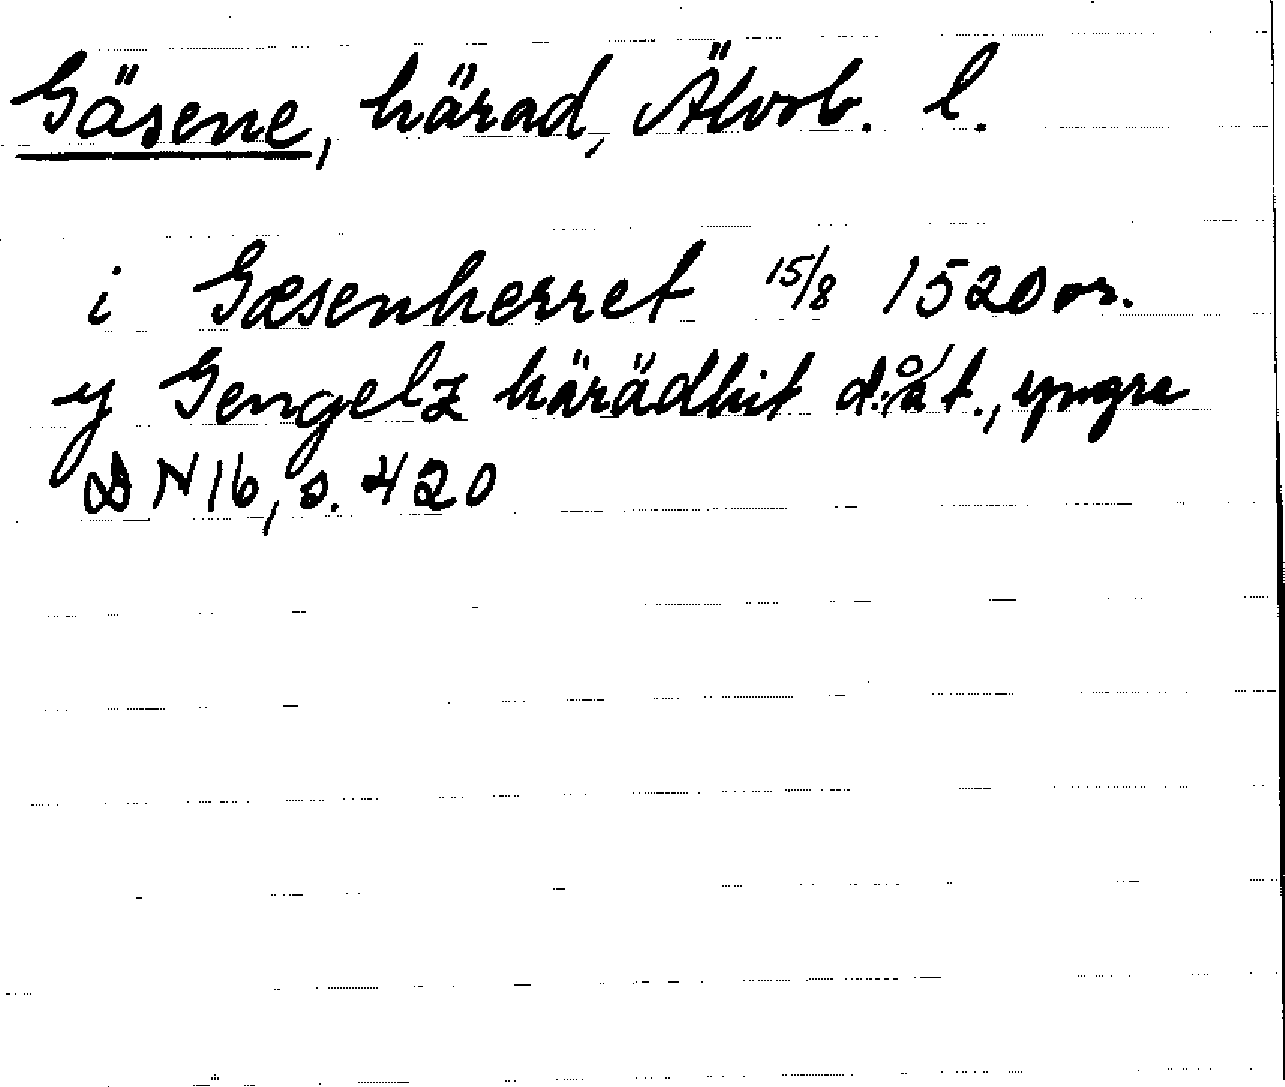 Gäsene, härad, Älvsb. l.
i Gæsenherret 15/8 1520 or.
y Gengelz härädhit d.å t., yngre
DN 16, s. 420